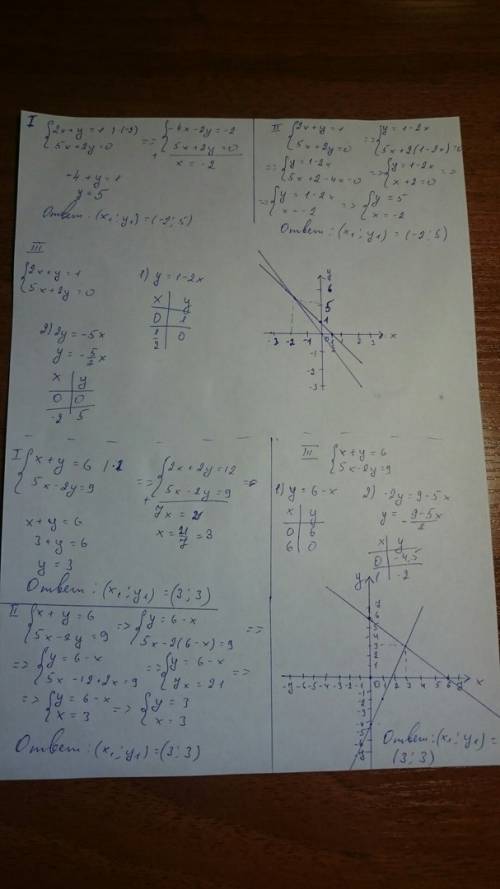 I {2x+y=1 |·(-2) => {-4x-2y=-2
{5x+2y=0 + {5x+2y=0
x=-2
-4+y=1
y=5
Ответ: (x₁; y₁) = (-2; 5)
II {2x+y=1 => {y=1-2x
{5x+2y=0 {5x+2(1-2x)=0
=> {y=1-2x => {y=1-2x =>
{5x+2-4x=0 {x+2=0
=> {y=1-2x => {y=5
{x=-2 {x=-2
Ответ: (x₁; y₁) = (-2; 5)
III
{2x+y=1
{5x+2y=0
1) y=1-2x
x y
0 1
1/2 0
2) 2y=-5x
y=-5/2x
x y
0 0
-2 5
6
5
4
-3 -2 -1 0 1 2 3 x
-1
-2
-3
I {x+y=6 |·2 => {2x+2y=12 =>
{5x-2y=9 + {5x-2y=9
7x=21
x=21/7=3
x+y=6
3+y=6
y=3
Ответ: (x₁; y₁) = (3; 3)
II {x+y=6 => {y=6-x =>
{5x-2y=9 {5x-2(6-x)=9
=> {y=6-x => {y=6-x =>
{5x-12+2x=9 {7x=21
=> {y=6-x => {y=3
{x=3 {x=3
Ответ: (x₁; y₁) = (3; 3)
III {x+y=6
{5x-2y=9
1) y=6-x
x y
0 6
6 0
2) -2y=9-5x
y=-9-5x/2
x y
0 -4,5
1 -2
y
-9 -8 -7 -6 -5 -4 -3 -2 -1 0 1 2 3 4 5 6 x
Ответ: (x₁; y₁) =
(3; 3)